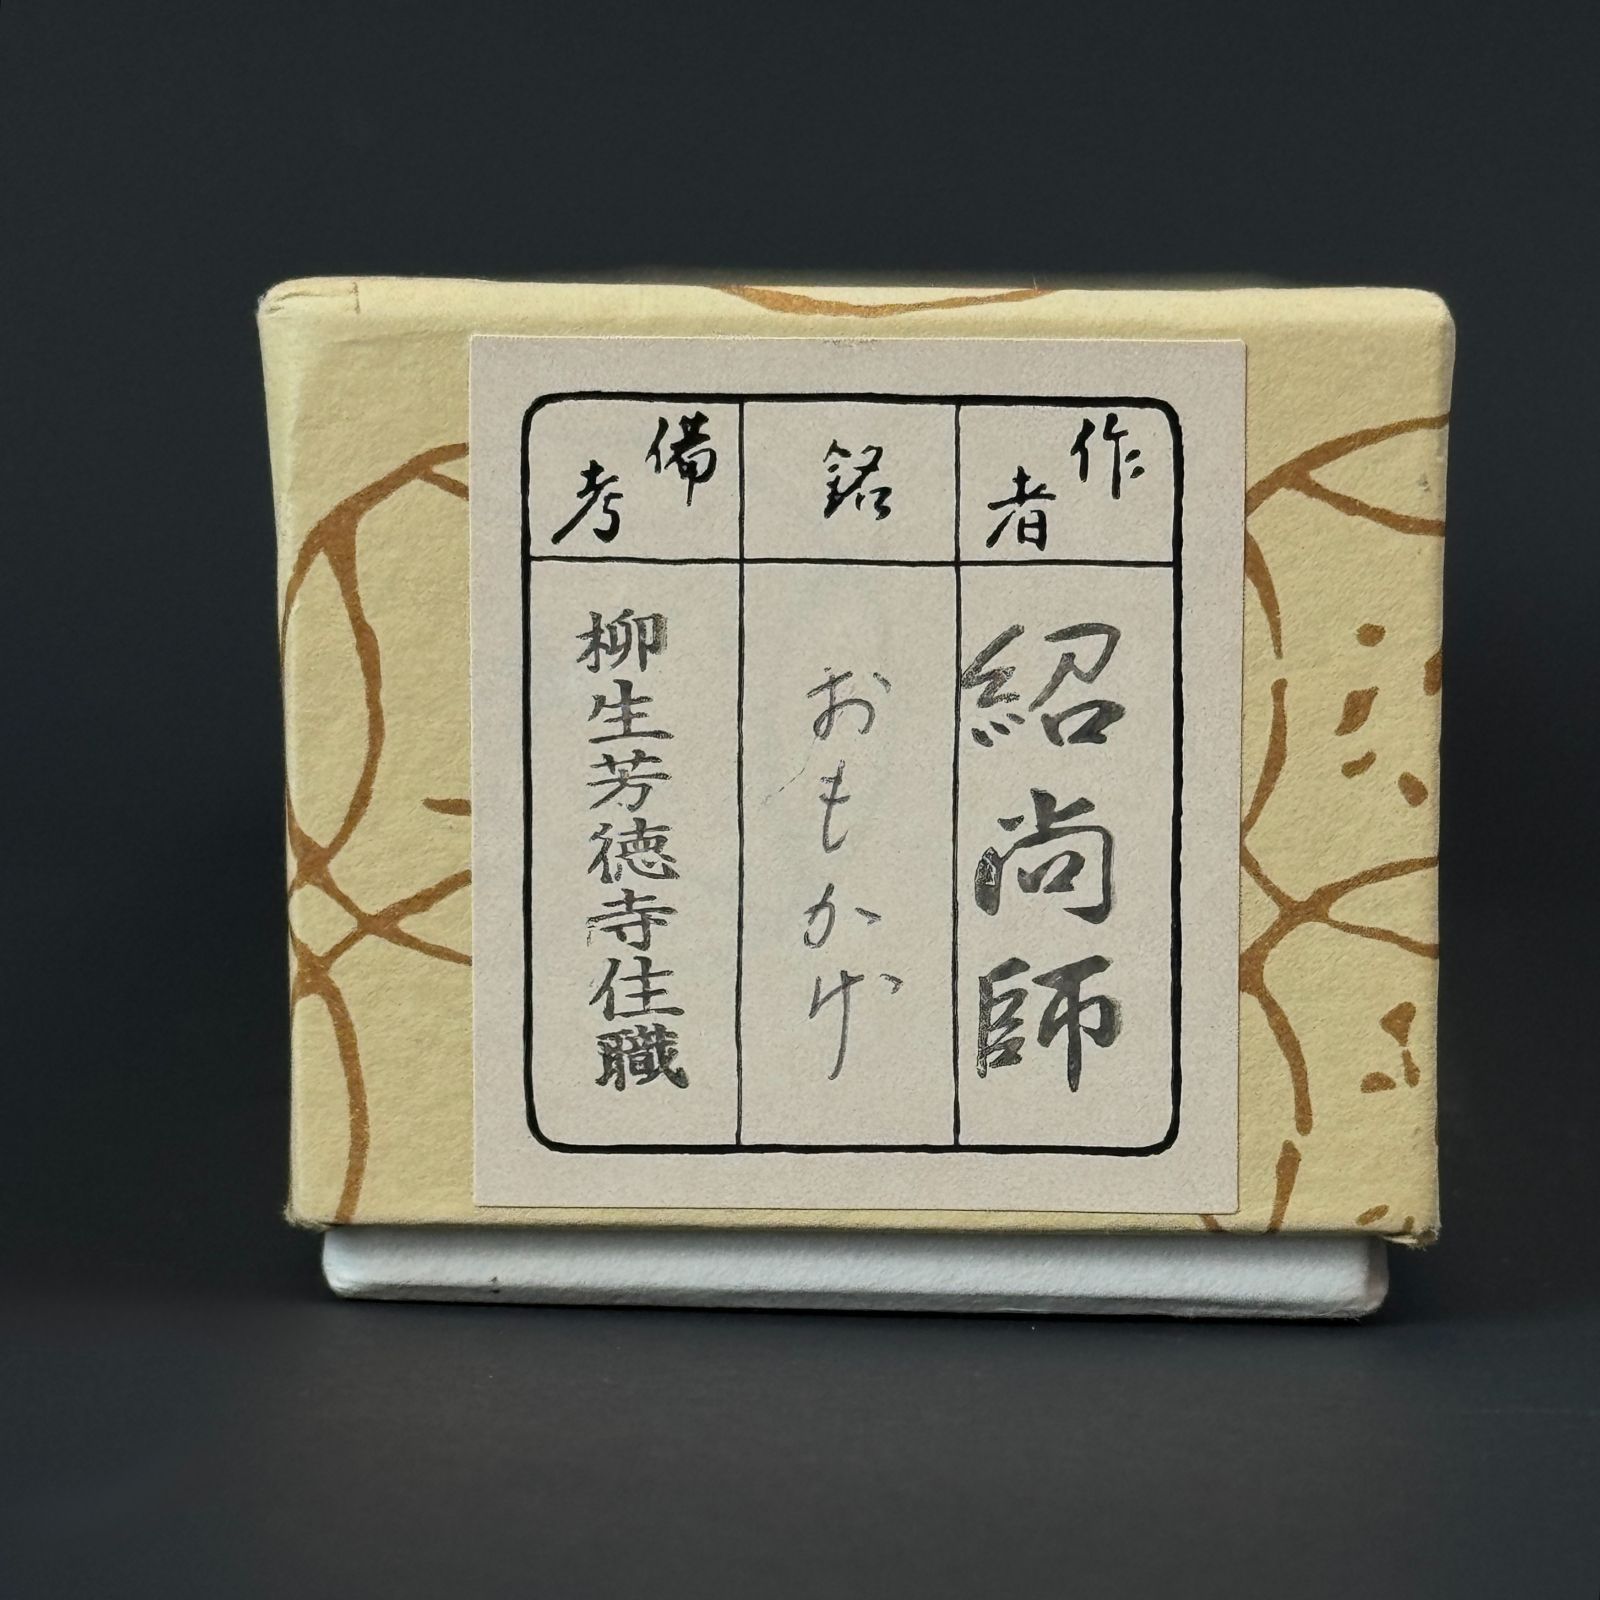 作者
紹尚師
銘
おもかげ
備考
柳生芳徳寺住職